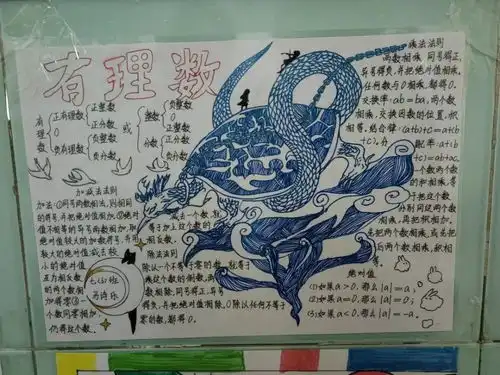 有理数
有理数
正有理数
正整数
正分数
0
负有理数
负整数
负分数
或
整数
正整数
0
负整数
分数
正分数
负分数
加减法法则
加法:①同号两数相加,取相同
的符号,并把绝对值相加.②绝
对值不相等的异号两数相加,取
绝对值较大的加数符号,并用
较大的绝对值减去较
小的绝对值
互为相反数
的两个数相
加得零③一
个数同零相加,
仍得这个数.
减去一个数,
等于加上这个数的
相反数.
除法法则
除以一个不等于零的数,就等于
乘这个数的倒数,两
数相除,同号得正,异号
得负,并把绝对值相除,0除以任何不等于
零的数,都得0.
乘法法则
两数相乘,同号得正,
异号得负,并把绝对值相乘,
任何数与0相乘,都得0.
交换率:ab=ba,两个数
相乘,交换因数的位置,积
相等.结合律:(ab)c=a(b
c),分配率:a(b
+c)=ab+ac.
一个数同两个数
的和相乘,等
于把这个数
分别同这两个数
相乘,再把积相加.
先把前两个数,或先把
后两个数相乘,积相
等.
绝对值
(1)如果a>0,那么|a|=a;
(2)如果a=0,那么|a|=0;
(3)如果a<0,那么|a|=-a.
七(4)班